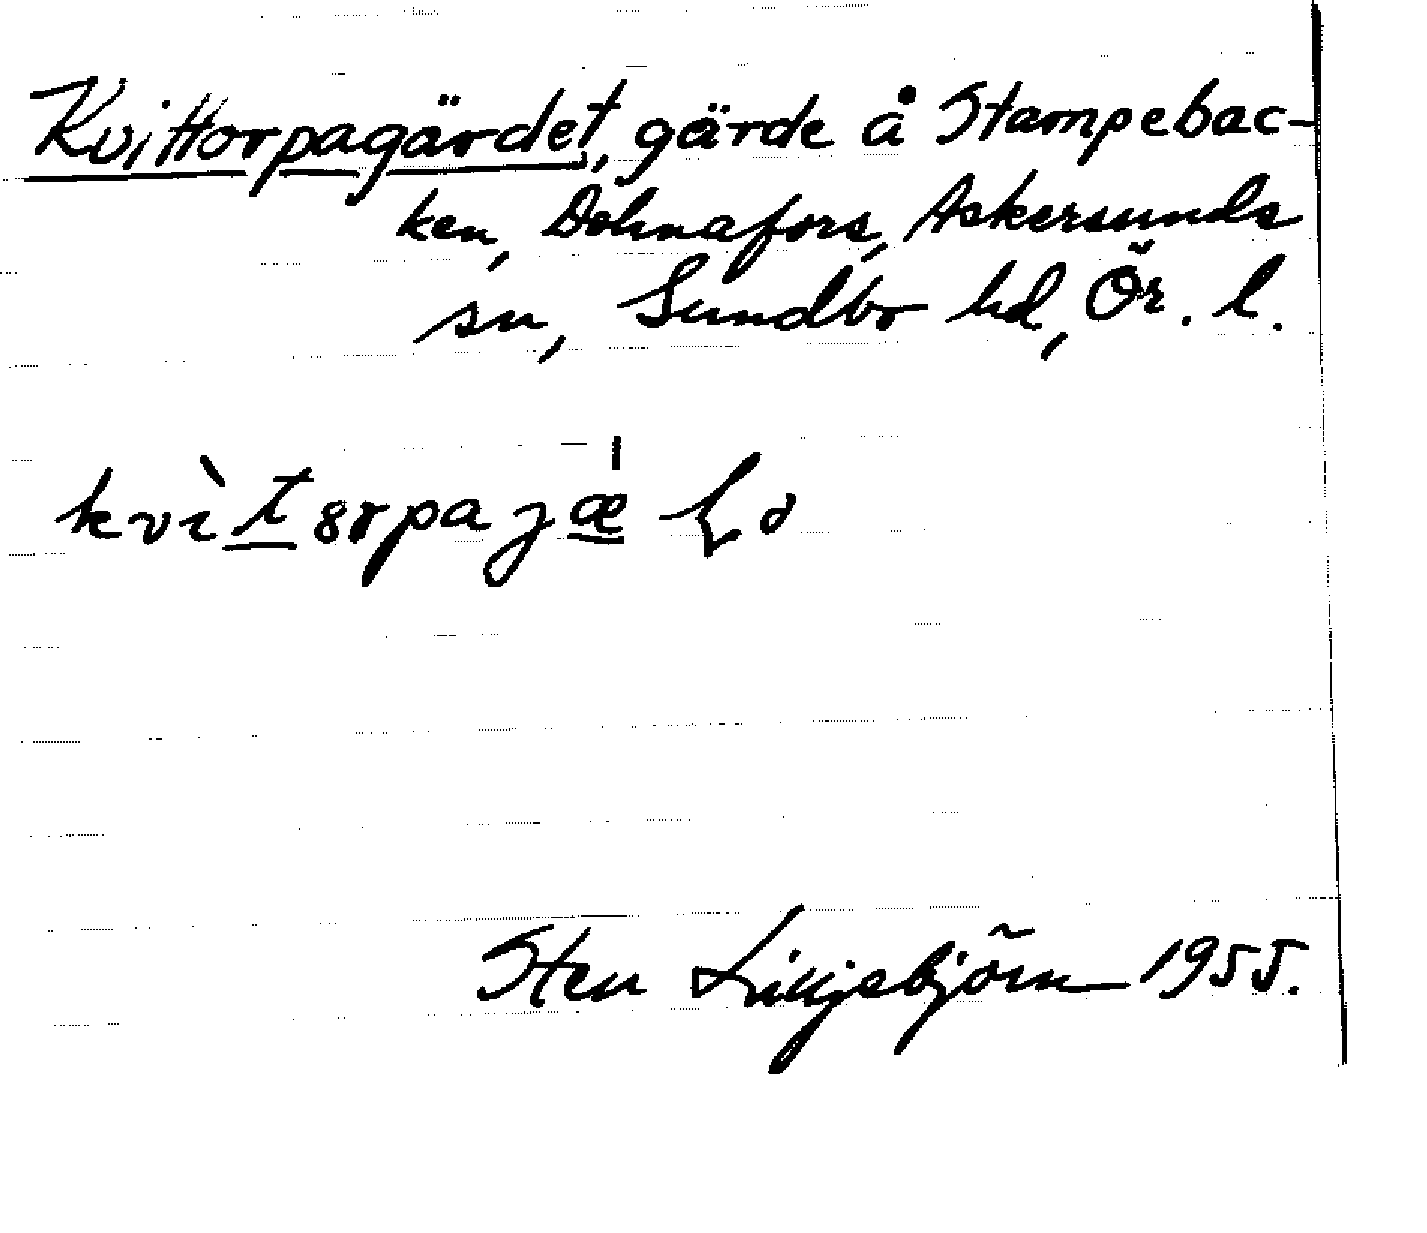 Kvittorpagärdet, gärde å Stampebac-
ken, Dohnafors, Askersunds
sn, Sundbo hd, Ör. l.
Sten Liljebjörn 1955.